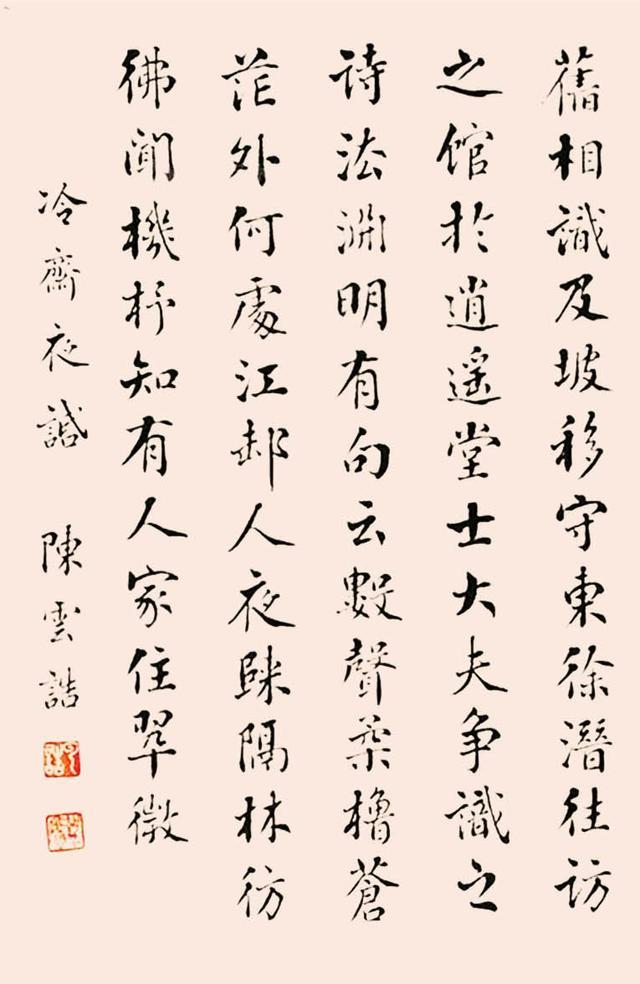 舊相識及坡移守東徐潛往訪
之館於逍遥堂士大夫争識之
詩法淵明有句云數聲柔櫓蒼
茫外何處江邨人夜歸隔林彷
彿聞機杼知有人家住翠微
冷齋夜話 陳雲誥